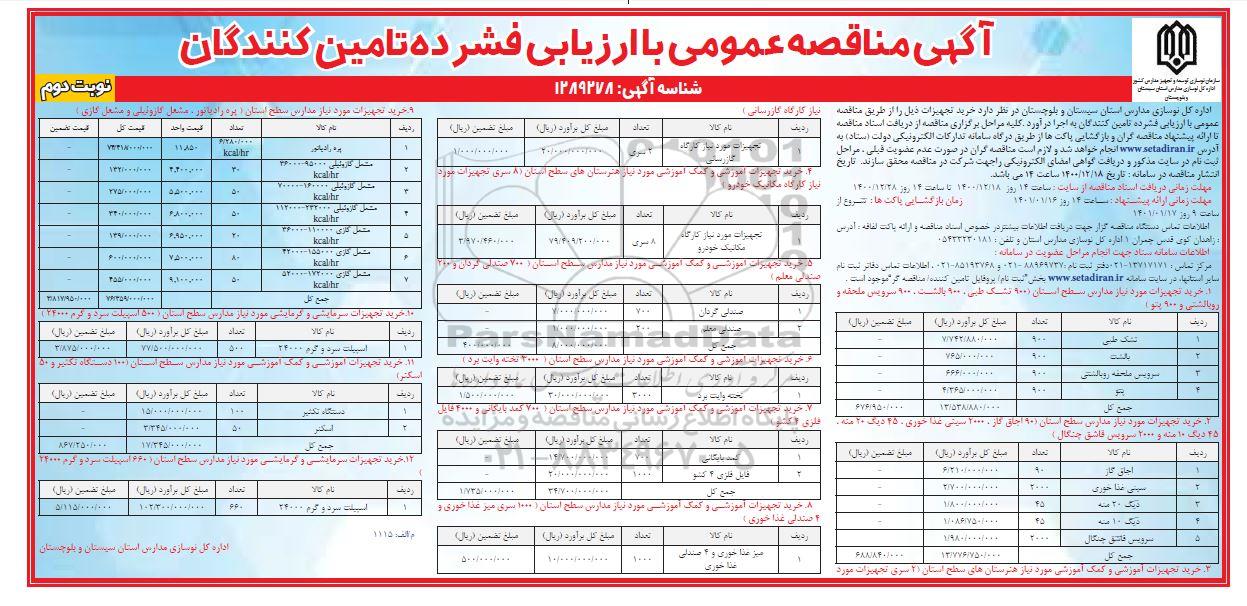 آگهی مناقصه عمومی با ارزیابی فشرده تامین کنندگان
شناسه آگهی: ۱۲۸۹۲۷۸
نوبت دوم
سازمان نوسازی توسعه و تجهیز مدارس کشور
اداره کل نوسازی مدارس استان سیستان
و بلوچستان
اداره کل نوسازی مدارس استان سیستان و بلوچستان در نظر دارد خرید تجهیزات ذیل را از طریق مناقصه
عمومی با ارزیابی فشرده تامین کنندگان به اجرا درآورد. کلیه مراحل برگزاری مناقصه از دریافت اسناد مناقصه
تا ارائه پیشنهاد مناقصه گران و بازگشایی پاکت ها از طریق درگاه سامانه تدارکات الکترونیکی دولت (ستاد) به
آدرس www.setadiran.ir انجام خواهد شد و لازم است مناقصه گران در صورت عدم عضویت قبلی، مراحل
ثبت نام در سایت مذکور و دریافت گواهی امضای الکترونیکی راجهت شرکت در مناقصه محقق سازند. تاریخ
انتشار مناقصه در سامانه : تاریخ ۱۴۰۰/۱۲/۱۸ ساعت ۱۴ می باشد.
مهلت زمانی دریافت اسناد مناقصه از سایت : ساعت ۱۴ روز ۱۴۰۰/۱۲/۱۸ تا ساعت ۱۴ روز ۱۴۰۰/۱۲/۲۸
مهلت زمانی ارائه پیشنهاد : ساعت ۱۴ روز ۱۴۰۱/۰۱/۱۶ زمان بازگشایی پاکت ها : شروع از
ساعت ۹ روز ۱۴۰۱/۰۱/۱۷
اطلاعات تماس دستگاه مناقصه گزار جهت دریافت اطلاعات بیشتر در خصوص اسناد مناقصه و ارائه پاکت لفافه : آدرس
: زاهدان کوی قدس چمران ۱ اداره کل نوسازی مدارس استان و تلفن : ۰۵۴۳۳۲۳۰۱۸۱
اطلاعات سامانه ستاد جهت انجام مراحل عضویت در سامانه :
مرکز تماس : ۱۳۷۱۷۱۷۱-۰۲۱ دفتر ثبت نام :۸۸۹۶۹۷۳۷-۰۲۱ و ۸۵۱۹۳۷۶۸-۰۲۱ . اطلاعات تماس دفاتر ثبت نام
سایر استانها، در سایت سامانه www.setadiran.ir بخش "ثبت نام/ پروفایل تامین کننده/ مناقصه گر" موجود است .
۱. خرید تجهیزات مورد نیاز مدارس سطح استان (۹۰۰ تشک طبی ، ۹۰۰ بالشت ، ۹۰۰ سرویس ملحفه و
روبالشتی و ۹۰۰ پتو )
ردیف نام کالا تعداد مبلغ کل برآورد (ریال) مبلغ تضمین (ریال)
۱ تشک طبی ۹۰۰ ۷/۷۴۲/۸۸۰/۰۰۰ -
۲ بالشت ۹۰۰ ۷۶۵/۰۰۰/۰۰۰ -
۳ سرویس ملحفه روبالشتی ۹۰۰ ۶۶۶/۰۰۰/۰۰۰ -
۴ پتو ۹۰۰ ۴/۳۶۵/۰۰۰/۰۰۰ -
جمع کل ۱۳/۵۳۸/۸۸۰/۰۰۰ ۶۷۶/۹۵۰/۰۰۰
۲. خرید تجهیزات مورد نیاز مدارس سطح استان (۹۰ اجاق گاز ، ۲۰۰۰ سینی غذا خوری ، ۴۵ دیگ ۲۰ منه ،
۴۵ دیگ ۱۰ منه و ۲۰۰۰ سرویس قاشق چنگال )
ردیف نام کالا تعداد مبلغ کل برآورد (ریال) مبلغ تضمین (ریال)
۱ اجاق گاز ۹۰ ۶/۲۱۰/۰۰۰/۰۰۰ -
۲ سینی غذا خوری ۲۰۰۰ ۲/۷۰۰/۰۰۰/۰۰۰ -
۳ دیگ ۲۰ منه ۴۵ ۱/۸۰۰/۰۰۰/۰۰۰ -
۴ دیگ ۱۰ منه ۴۵ ۱/۰۸۶/۷۵۰/۰۰۰ -
۵ سرویس قاشق چنگال ۲۰۰۰ ۱/۹۸۰/۰۰۰/۰۰۰ -
جمع کل ۱۳/۷۷۶/۷۵۰/۰۰۰ ۶۸۸/۸۴۰/۰۰۰
۳. خرید تجهیزات آموزشی و کمک آموزشی مورد نیاز هنرستان های سطح استان (۲ سری تجهیزات مورد
نیاز کارگاه گازرسانی )
ردیف نام کالا تعداد مبلغ کل برآورد (ریال) مبلغ تضمین (ریال)
۱ تجهیزات مورد نیاز کارگاه گازرسانی ۲ سری ۲۰/۰۰۰/۰۰۰/۰۰۰ ۱/۰۰۰/۰۰۰/۰۰۰
۴. خرید تجهیزات آموزشی و کمک آموزشی مورد نیاز هنرستان های سطح استان (۸ سری تجهیزات مورد
نیاز کارگاه مکانیک خودرو )
ردیف نام کالا تعداد مبلغ کل برآورد (ریال) مبلغ تضمین (ریال)
۱ تجهیزات مورد نیاز کارگاه مکانیک خودرو ۸ سری ۷۹/۴۰۹/۲۰۰/۰۰۰ ۳/۹۷۰/۴۶۰/۰۰۰
۵. خرید تجهیزات آموزشی و کمک آموزشی مورد نیاز مدارس سطح استان ( ۷۰۰ صندلی گردان و ۲۰۰
صندلی معلم )
ردیف نام کالا تعداد مبلغ کل برآورد (ریال) مبلغ تضمین (ریال)
۱ صندلی گردان ۷۰۰ ۷/۰۰۰/۰۰۰/۰۰۰ -
۲ صندلی معلم ۲۰۰ ۱/۰۰۰/۰۰۰/۰۰۰ -
جمع کل ۸/۰۰۰/۰۰۰/۰۰۰ ۴۰۰/۰۰۰/۰۰۰
۶. خرید تجهیزات آموزشی و کمک آموزشی مورد نیاز مدارس سطح استان ( ۳۰۰۰ تخته وایت برد )
ردیف نام کالا تعداد مبلغ کل برآورد (ریال) مبلغ تضمین (ریال)
۱ تخته وایت برد ۳۰۰۰ ۳۰/۰۰۰/۰۰۰/۰۰۰ ۱/۵۰۰/۰۰۰/۰۰۰
۷. خرید تجهیزات آموزشی و کمک آموزشی مورد نیاز مدارس سطح استان ( ۷۰۰ کمد بایگانی و ۴۰۰۰ فایل
فلزی ۴ کشو )
ردیف نام کالا تعداد مبلغ کل برآورد (ریال) مبلغ تضمین (ریال)
۱ کمد بایگانی ۷۰۰ ۱۴/۷۰۰/۰۰۰/۰۰۰ -
۲ فایل فلزی ۴ کشو ۱۰۰۰ ۲۰/۰۰۰/۰۰۰/۰۰۰ -
جمع کل ۳۴/۷۰۰/۰۰۰/۰۰۰ ۱/۷۳۵/۰۰۰/۰۰۰
۸. خرید تجهیزات آموزشی و کمک آموزشی مورد نیاز مدارس سطح استان ( ۱۰۰۰ سری میز غذا خوری و
۴ صندلی غذا خوری )
ردیف نام کالا تعداد مبلغ کل برآورد (ریال) مبلغ تضمین (ریال)
۱ میز غذا خوری و ۴ صندلی غذا خوری ۱۰۰۰ ۱۰/۰۰۰/۰۰۰/۰۰۰ ۵۰۰/۰۰۰/۰۰۰
۹.خرید تجهیزات مورد نیاز مدارس سطح استان ( پره رادیاتور ، مشعل گازوئیلی و مشعل گازی )
ردیف نام کالا تعداد قیمت واحد قیمت کل قیمت تضمین
۱ پره رادیاتور ۶/۲۸۰/۰۰۰ kcal/hr ۱۱.۸۵۰ ۷۴/۴۱۸/۰۰۰/۰۰۰ -
۲ مشعل گازوئیلی ۹۵۰۰۰-۳۶۰۰۰ kcal/hr ۳۰ ۴,۴۰۰,۰۰۰ ۱۳۲/۰۰۰/۰۰۰ -
۳ مشعل گازوئیلی ۱۶۰۰۰۰-۷۰۰۰۰ kcal/hr ۵۰ ۵,۵۰۰,۰۰۰ ۲۷۵/۰۰۰/۰۰۰ -
۴ مشعل گازوئیلی ۲۳۲۰۰۰-۱۱۲۰۰۰ kcal/hr ۵۰ ۶,۸۰۰,۰۰۰ ۳۴۰/۰۰۰/۰۰۰ -
۵ مشعل گازی ۱۱۰۰۰۰-۳۶۰۰۰ kcal/hr ۲۰ ۶,۹۵۰,۰۰۰ ۱۳۹/۰۰۰/۰۰۰ -
۶ مشعل گازی ۱۵۵۰۰۰-۴۲۰۰۰ kcal/hr ۸۰ ۷,۵۰۰,۰۰۰ ۶۰۰/۰۰۰/۰۰۰ -
۷ مشعل گازی ۱۷۲۰۰۰-۵۲۰۰۰ kcal/hr ۵۰ ۹,۱۰۰,۰۰۰ ۴۵۵/۰۰۰/۰۰۰ -
جمع کل ۷۶/۳۵۹/۰۰۰/۰۰۰ ۳/۸۱۷/۹۵۰/۰۰۰
۱۰.خرید تجهیزات سرمایشی و گرمایشی مورد نیاز مدارس سطح استان ( ۵۰۰ اسپیلت سرد و گرم ۲۴۰۰۰ )
ردیف نام کالا تعداد مبلغ کل برآورد (ریال) مبلغ تضمین (ریال)
۱ اسپیلت سرد و گرم ۲۴۰۰۰ ۵۰۰ ۷۷/۵۰۰/۰۰۰/۰۰۰ ۳/۸۷۵/۰۰۰/۰۰۰
۱۱.خرید تجهیزات آموزشی و کمک آموزشی مورد نیاز مدارس سطح استان (۱۰۰ دستگاه تکثیر و ۵۰
اسکنر)
ردیف نام کالا تعداد مبلغ کل برآورد (ریال) مبلغ تضمین (ریال)
۱ دستگاه تکثیر ۱۰۰ ۱۵/۰۰۰/۰۰۰/۰۰۰ -
۲ اسکنر ۵۰ ۳/۳۴۵/۰۰۰/۰۰۰ -
جمع کل ۱۷/۳۴۵/۰۰۰/۰۰۰ ۸۶۷/۲۵۰/۰۰۰
۱۲.خرید تجهیزات سرمایشی و گرمایشی مورد نیاز مدارس سطح استان ( ۶۶۰ اسپیلت سرد و گرم ۲۴۰۰۰
)
ردیف نام کالا تعداد مبلغ کل برآورد (ریال) مبلغ تضمین (ریال)
۱ اسپیلت سرد و گرم ۲۴۰۰۰ ۶۶۰ ۱۰۲/۳۰۰/۰۰۰/۰۰۰ ۵/۱۱۵/۰۰۰/۰۰۰
م/الف: ۱۱۱۵
اداره کل نوسازی مدارس استان سیستان و بلوچستان
ParsNamadData
پایگاه اطلاع رسانی مناقصه و مزایده
۰۲۱-۸۸۳۴۹۶۷۰-۵